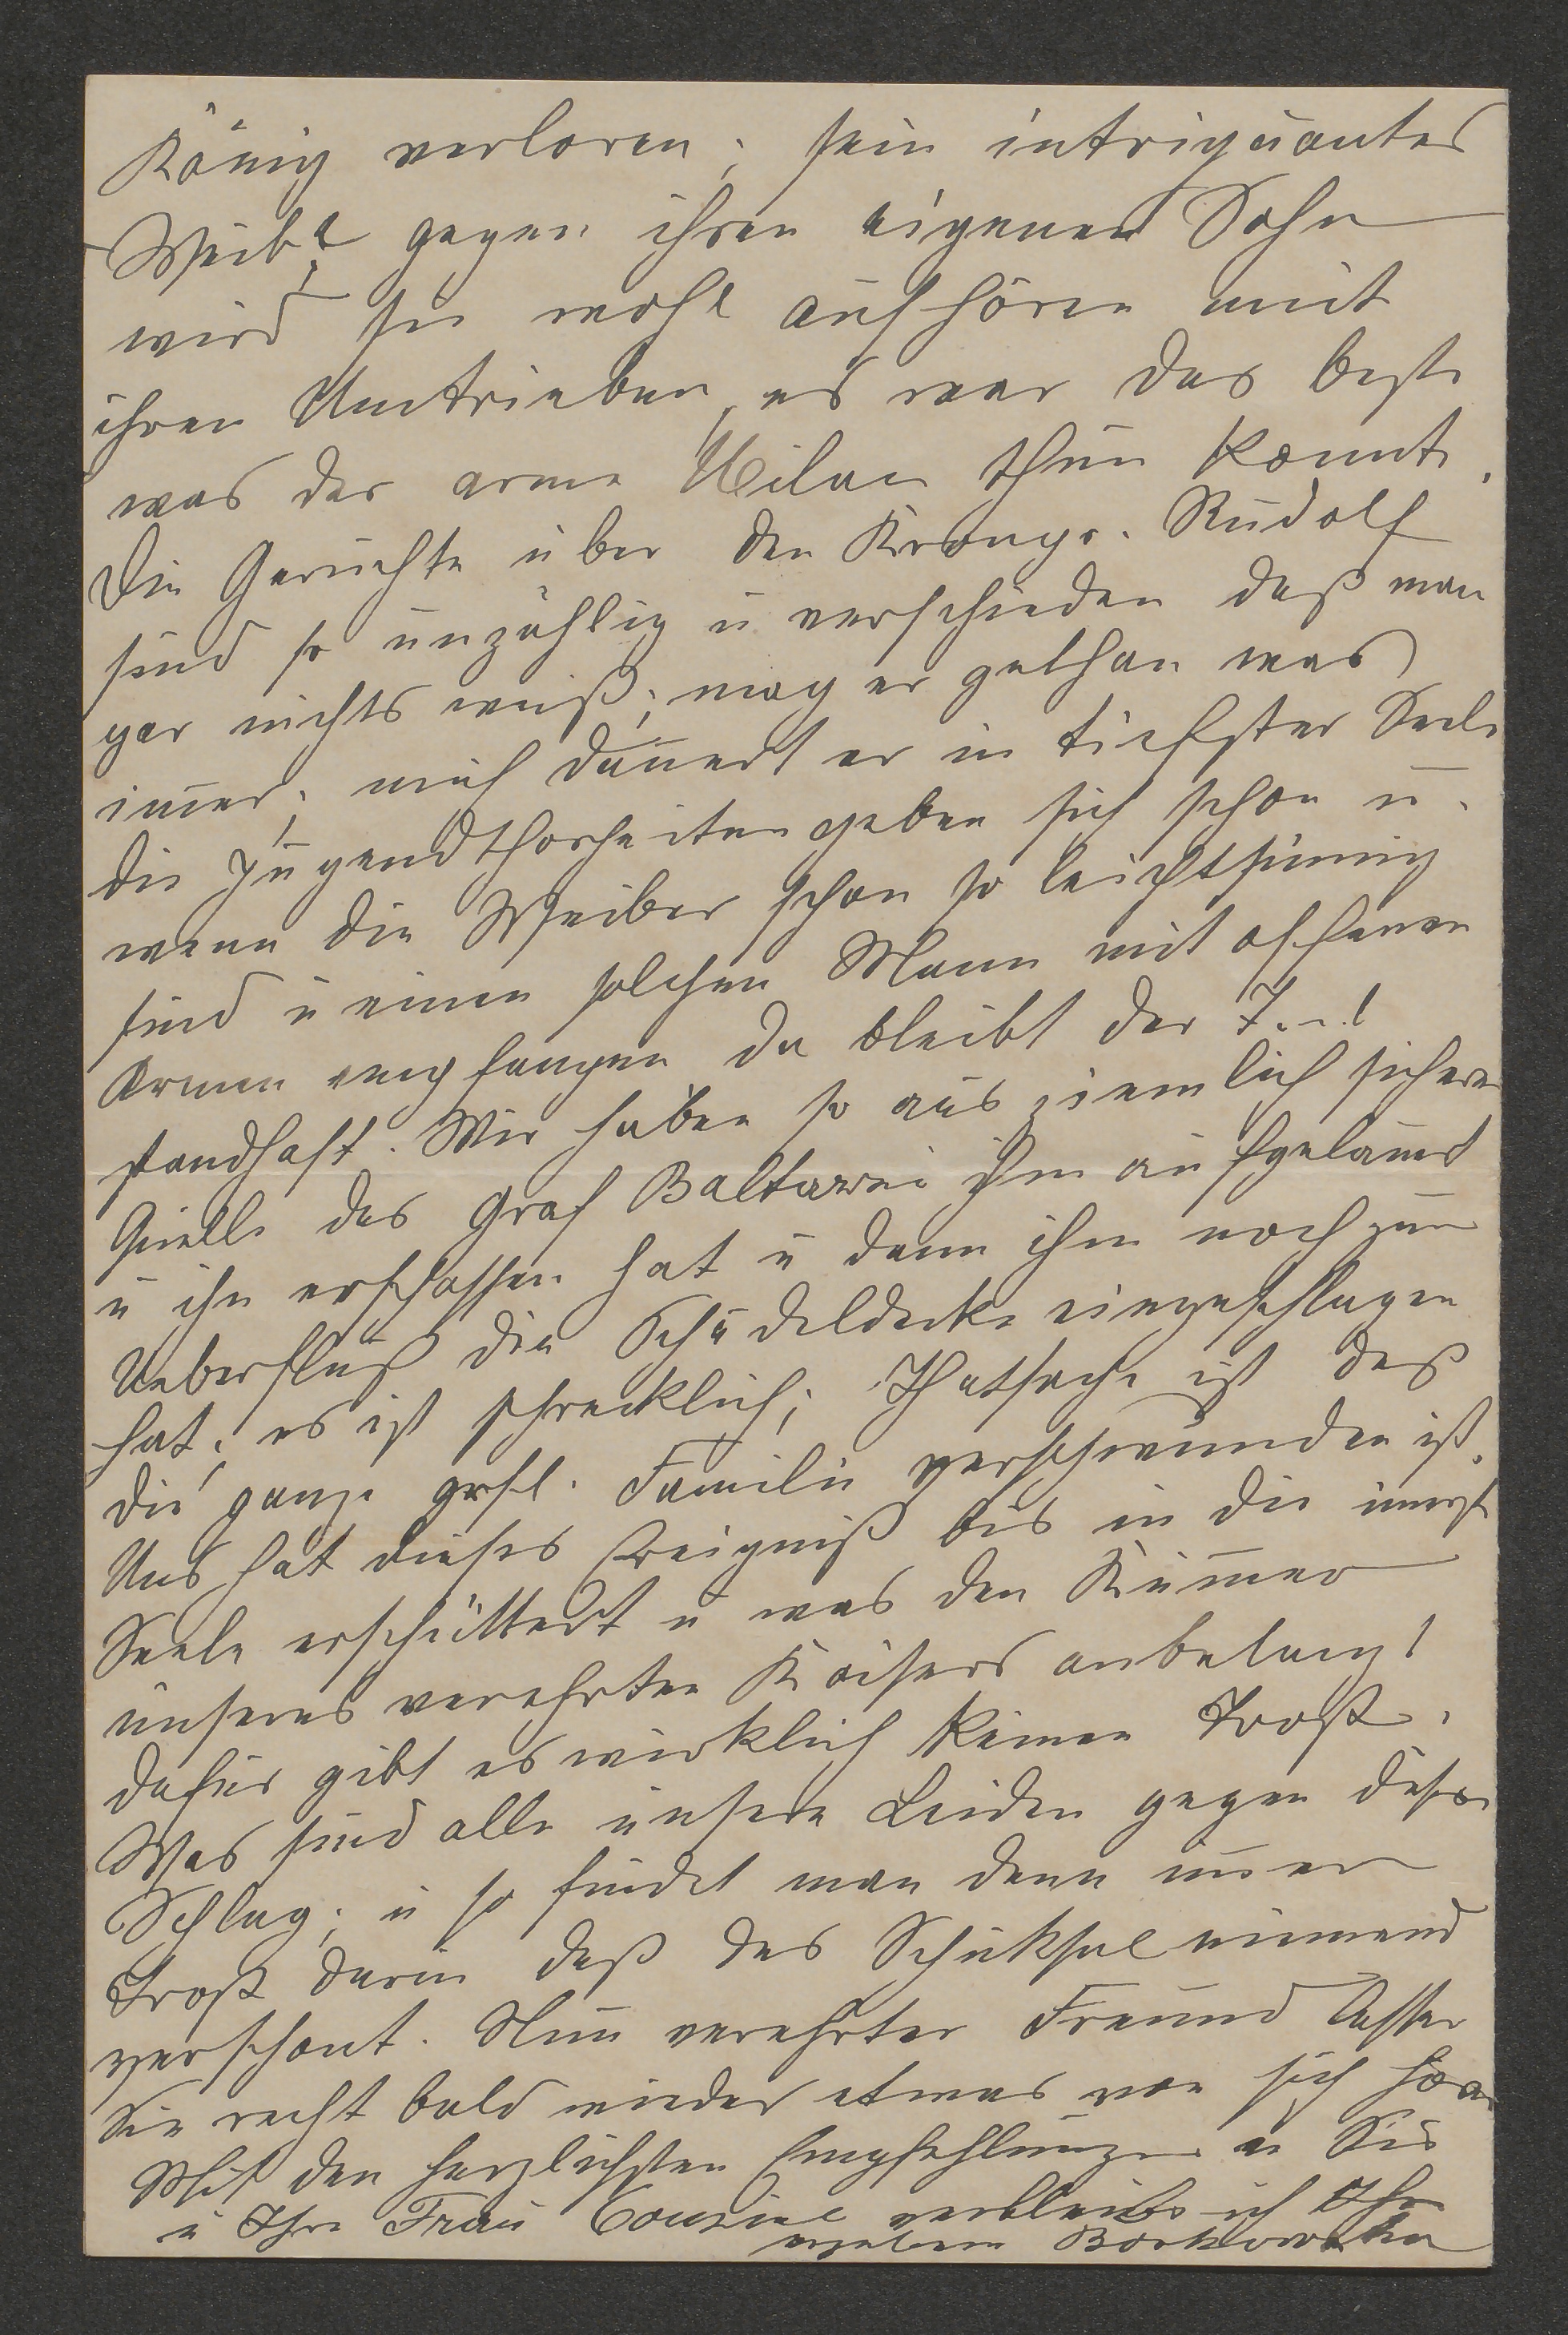 König verloren; sein intriguantes
Weib? gegen ihren eigenen Sohn
wird sie wohl aufhören mit
ihren Umtrieben, es war das beste
was der arme Milan thun konnte.
Die Gerüchte über den Kronpr. Rudolf
sind so unzählig u verschieden daß man
gar nichts weiß; mag er gethan was
im̅er; mich dauert er in tiefster Seele
die Jugendthorheiten geben sich schon u.
wenn die Weiber schon so leichtsinnig
sind u einen solchen Mann mit offenen
Armen empfangen da bleibt der J..!
standhaft. Wir haben so aus ziemlich sicherer
Quelle das Graf Baltazzi ihm aufgelauert
u ihn erschossen hat u dann ihm noch zum
Ueberfluß die Schädeldecke eingeschlagen
hat; es ist schrecklich; Thatsache ist daß
die ganze grfl. Familie verschwunden ist.
Uns hat dieses Ereigniß bis in die innerste
Seele erschüttert u was den Kum̅er
unseres verehrten Kaisers anbelangt
dafür gibt es wirklich keinen Trost.
Was sind alle unsere Leiden gegen diesen
Schlag; u so findet man denn im̅er
Trost darin daß das Schiksal niemand
verschont. Nun verehrter Freund lassen
Sie recht bald wieder etwas von sich hören
Mit den herzlichsten Empfehlungen an Sie
u Ihre Frau Cousine verbleibe ich Ihre
ergebene Borkowska